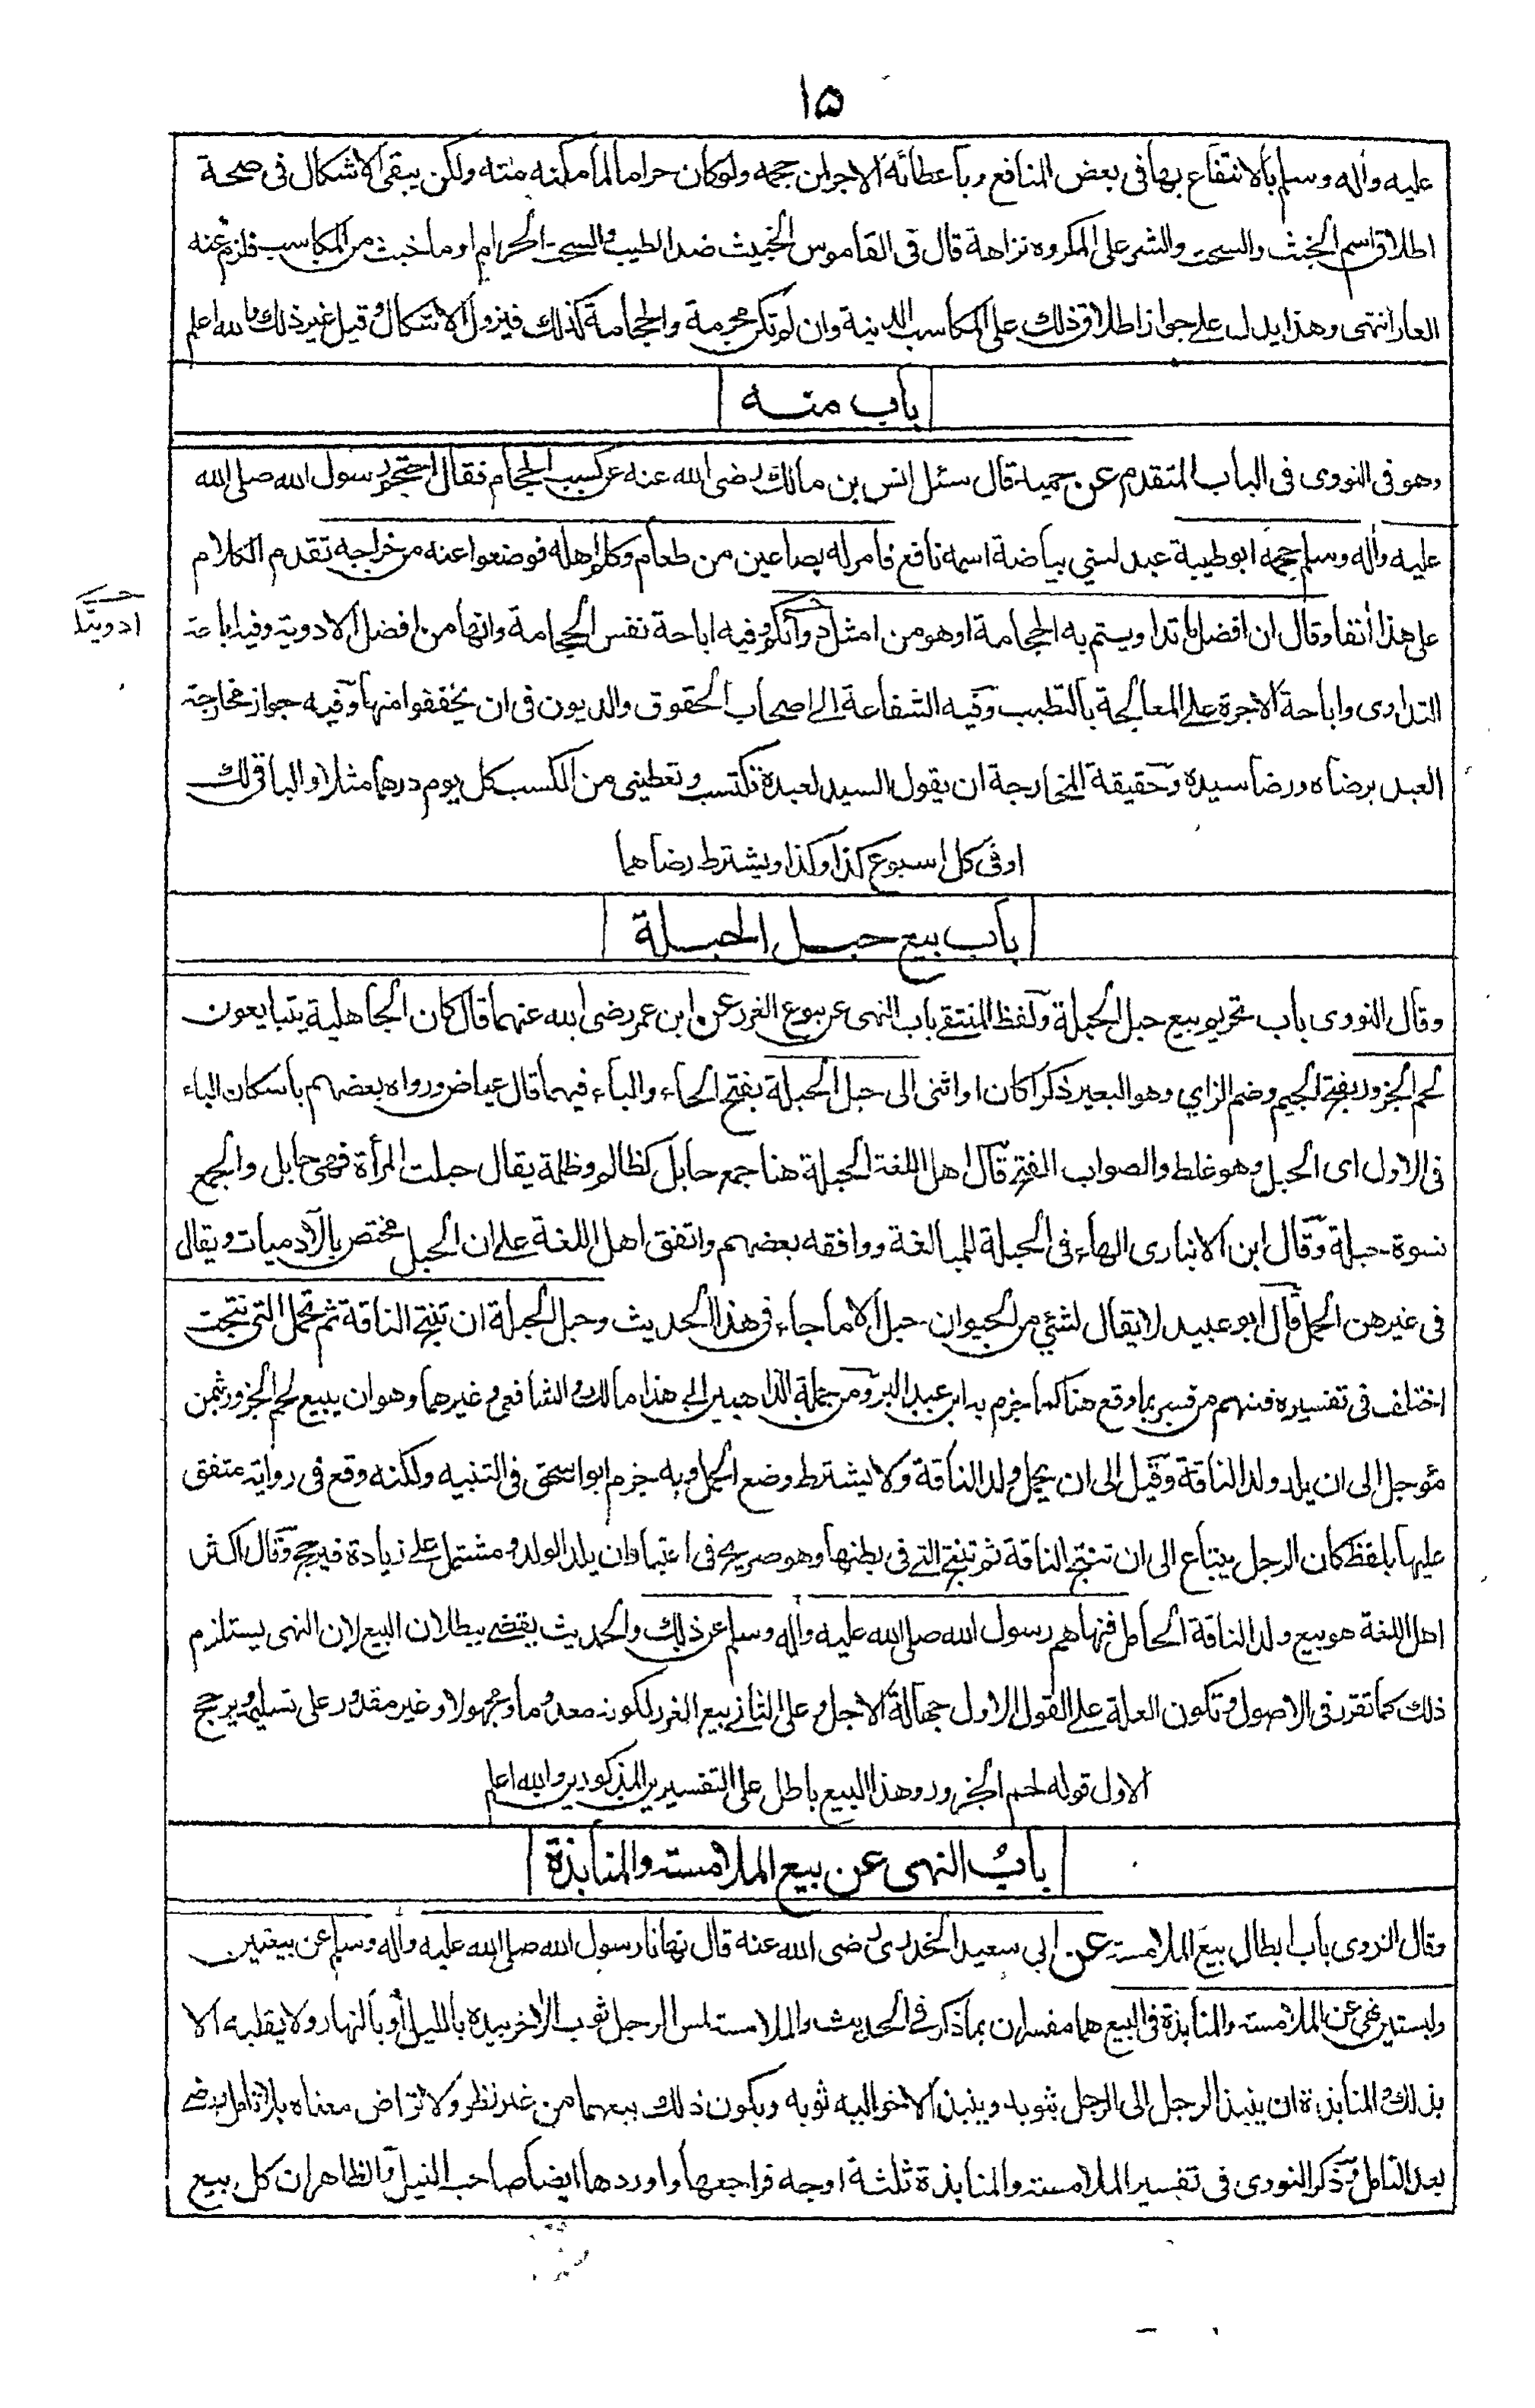 ١٥
عليه واله وسلم بالانتفاع بها في بعض المنافع وباعطائه الاجر لمن حجمه ولو كان حراما لما مكنه منه ولكن يبقى الاشكال في صحة
اطلاق اسم الخبث والسحت والشر على المكروه نزاهة قال في القاموس الخبيث ضد الطيب والسحت الحرام او ما خبث من المكاسب فلزم عنه
العار انتهى وهذا يدل على جواز اطلاق ذلك على المكاسب الدنية وان لم تكن محرمة والحجامة كذلك فيزول الاشكال وقيل غير ذلك والله اعلم
باب منه
وهو في النووي في الباب المتقدم عن حميد قال سئل انس بن مالك رضي الله عنه عن كسب الحجام فقال احتجم رسول الله صلى الله
عليه واله وسلم حجمه ابو طيبة عبد لبني بياضة اسمه نافع فامر له بصاعين من طعام وكلم اهله فوضعوا عنه من خراجه تقدم الكلام
على هذا آنفا وقال ان افضل ما تداويتم به الحجامة او هو من امثل دوائكم وفيه اباحة نفس الحجامة وانها من افضل الادوية وفيه اباحة
ادويتكم
التداوي واباحة الاجرة على المعالجة بالتطبب وفيه الشفاعة الى اصحاب الحقوق والديون في ان يخففوا منها وفيه جواز مخارجة
العبد برضاه ورضا سيده وحقيقة المخارجة ان يقول السيد لعبده تكتسب وتعطيني من الكسب كل يوم درهما مثلا والباقي لك
او في كل اسبوع كذا وكذا ويشترط رضاهما
باب بيع حبل الحبلة
وقال النووي باب تحريم بيع حبل الحبلة ولفظ المنتقى باب النهي عن بيوع الغرر عن ابن عمر رضي الله عنهما قال كان الجاهلية يتبايعون
لحم الجزور بفتح الجيم وضم الزاي وهو البعير ذكرا كان او انثى الى حبل الحبلة بفتح الحاء والباء فيهما قال عياض ورواه بعضهم باسكان الباء
في الاول اي الحبل وهو غلط والصواب الفتح قال اهل اللغة الحبلة هنا جمع حابل كظالم وظلمة يقال حبلت المرأة فهي حابل والجمع
نسوة حبلة وقال ابن الانباري الهاء في الحبلة للمبالغة ووافقه بعضهم واتفق اهل اللغة على ان الحبل مختص بالآدميات ويقال
في غيرهن الحمل قال ابو عبيد لا يقال لشيء من الحيوان حبل الا ما جاء في هذا الحديث وحبل الحبلة ان تنتج الناقة ثم تحمل التي نتجت
اختلف في تفسيره فمنهم من فسر بما وقع هنا كما جزم به ابن عبد البر ومن جملة الذاهبين الى هذا مالك والشافعي وغيرهما وهو ان يبيع لحم الجزور بثمن
مؤجل الى ان يلد ولد الناقة وقيل الى ان يحمل ولد الناقة ولا يشترط وضع الحمل وبه جزم ابو اسحق في التنبيه ولكنه وقع في رواية متفق
عليها بلفظ كان الرجل يبتاع الى ان تنتج الناقة ثم تنتج التي في بطنها وهو صريح في اعتبار ان يلد الولد ومشتمل على زيادة فيرجح وقال اكثر
اهل اللغة هو بيع ولد الناقة الحامل فنهاهم رسول الله صلى الله عليه واله وسلم عن ذلك والحديث يقضي ببطلان البيع لان النهي يستلزم
ذلك كما تقرر في الاصول وتكون العلة على القول الاول جهالة الاجل وعلى الثاني بيع الغرر لكونه معدوما ومجهولا وغير مقدور على تسليمه ويرجح
الاول قوله لحم الجزور وهذا البيع باطل على التفسيرين المذكورين والله اعلم
باب النهي عن بيع الملامسة والمنابذة
وقال النووي باب ابطال بيع الملامسة عن ابي سعيد الخدري رضي الله عنه قال نهانا رسول الله صلى الله عليه واله وسلم عن بيعتين
ولبستين نهى عن الملامسة والمنابذة في البيع هما مفسران بما ذكر في الحديث والملامسة لمس الرجل ثوب الآخر بيده بالليل او بالنهار ولا يقلبه الا
بذلك والمنابذة ان ينبذ الرجل الى الرجل بثوبه وينبذ الآخر اليه ثوبه ويكون ذلك بيعهما من غير نظر ولا تراض معناه بلا تامل ورضى
بعد التامل وذكر النووي في تفسير الملامسة والمنابذة ثلثة اوجه فراجعها واوردها ايضا صاحب النيل والظاهر ان كل بيع